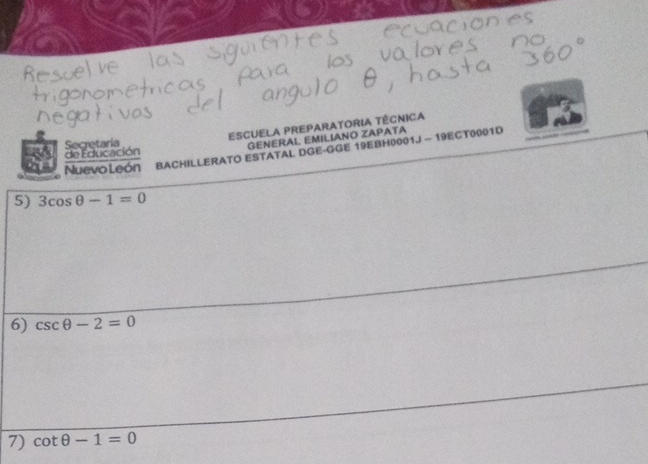 Resuelve las siguientes ecuaciones
trigonometricas para los valores no
negativos del angulo θ, hasta 360°
Segretaría
de Educación
Nuevo León
ESCUELA PREPARATORIA TÉCNICA
GENERAL EMILIANO ZAPATA
BACHILLERATO ESTATAL DGE-GGE 19EBH0001J – 19ECT0001D
5) 3cos θ − 1 = 0
6) csc θ − 2 = 0
7) cot θ − 1 = 0